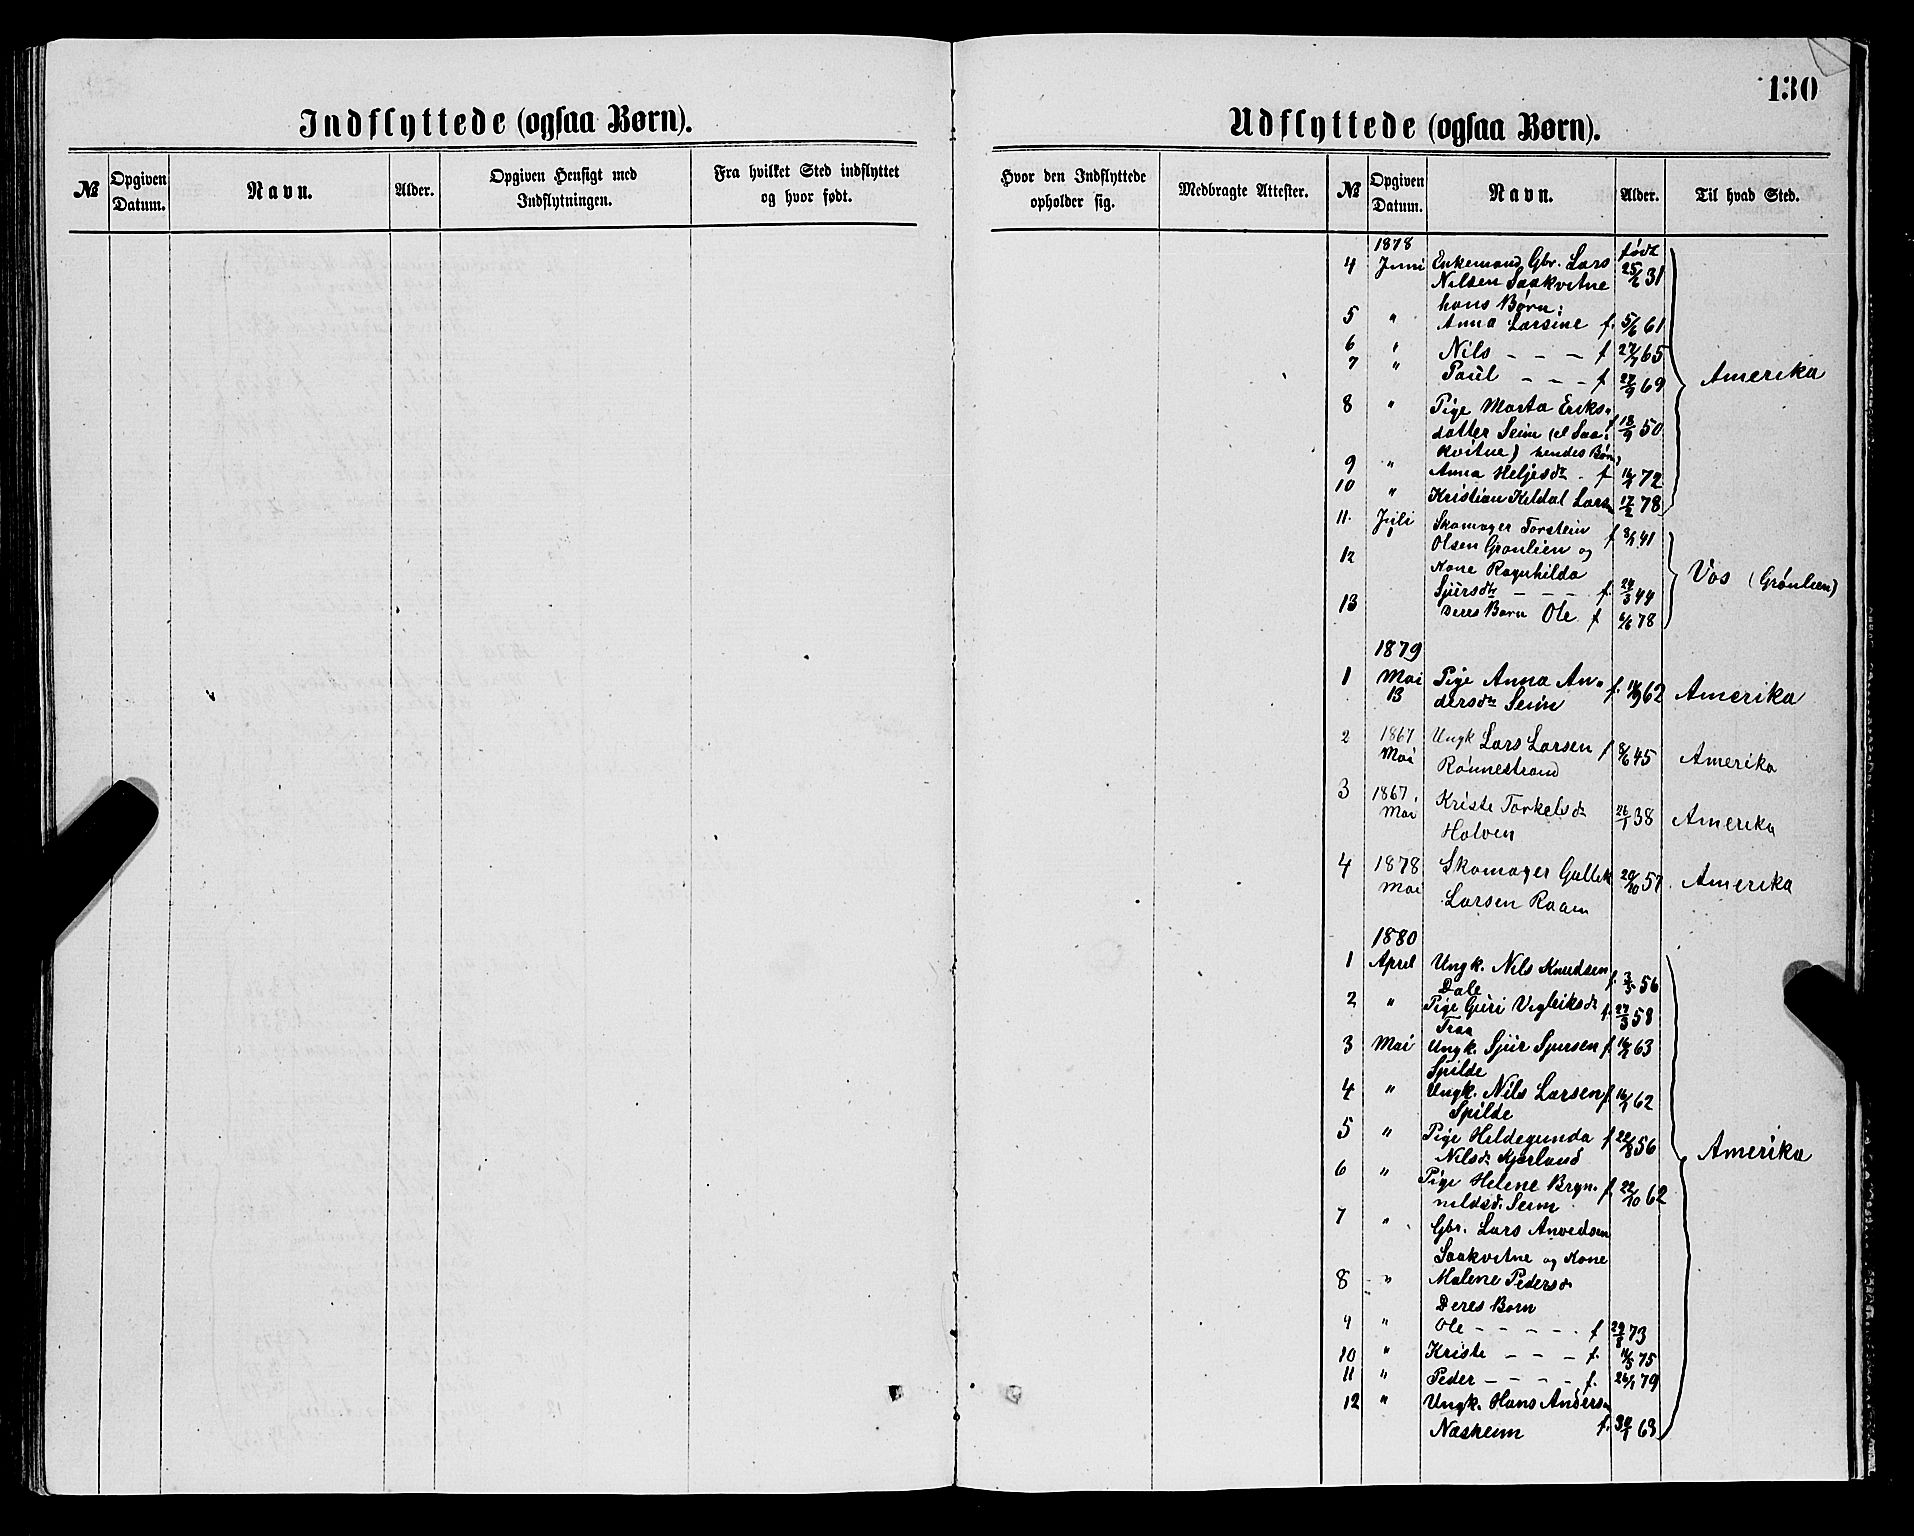 130
Indflyttede (ogsaa Børn).
Udflyttede (ogsaa Børn).
№ Opgiven Datum. Navn. Alder. Opgiven Hensigt med Indflytningen. Fra hvilket Sted indflyttet og hvor født.
Hvor den Indflyttede opholder sig. Medbragte Attester. № Opgiven Datum. Navn. Alder. Til hvad Sted.
1878 født
4 Juni Enkemand Gbr. Lars 25/2 31
Nilsen Saakvitne
hans Børn:
5 " Anna Larsine f. 5/6 61
6 " Nils – – – f 27/7 65
7 " Paul – – – f 27/9 69
Amerika
8 " Pige Marta Eriks-
datter Seim (el Saa- f 18/9 50
kvitne) hendes Børn
9 " Anna Heljesdr. f 72
10 " Kristian Keldal Larsen 17/2 78
11. Juli Skomager Torstein
Olsen Grønlien og f 41
12 Kone Ragnhilda
Sjursdtr – – – f. 24/3 44
Vos (Grønlien)
13 Deres Barn Ole f 78
1879
1 Mai Pige Anna An-
13 dersdtr Seim f. 62 Amerika
2 1867 Ungk Lars Larsen f 8/6 45 Amerika
Mai Rønnestrand
3 1867. Kriste Torkelsdr 26/1 38 Amerika
Mai Halven
4 1878 Skomager Gullik 20/10 57. Amerika
Mai Larsen Raaen
1880
1 April Ungk. Nils Knudsen
Dale f. 56
2 " Pige Guri Vigleiksdr f. 27/3 58
Traa
3 Mai Ungk. Sjur Sjursen f 63
Spilde
4 " Ungk. Nils Larsen f 62
Spilde
5 " Pige Hildegunda f 22/8 56
Nilsdr Kjerland
Amerika
6 " Pige Helene Bryn- f. 22/10 62
nildsdr. Seim
7 " Gbr. Lars Anvedsen
Saakvitne og Kone
8 " Malene Pedersdr
Deres Born
9 " Ole – – – – – f 29/8 73
10 " Kriste – – – f. 75
11 " Peder – – – – f. 26/1 79
12 " Ungk. Hans Andersen
Næsheim f. 30/1 63